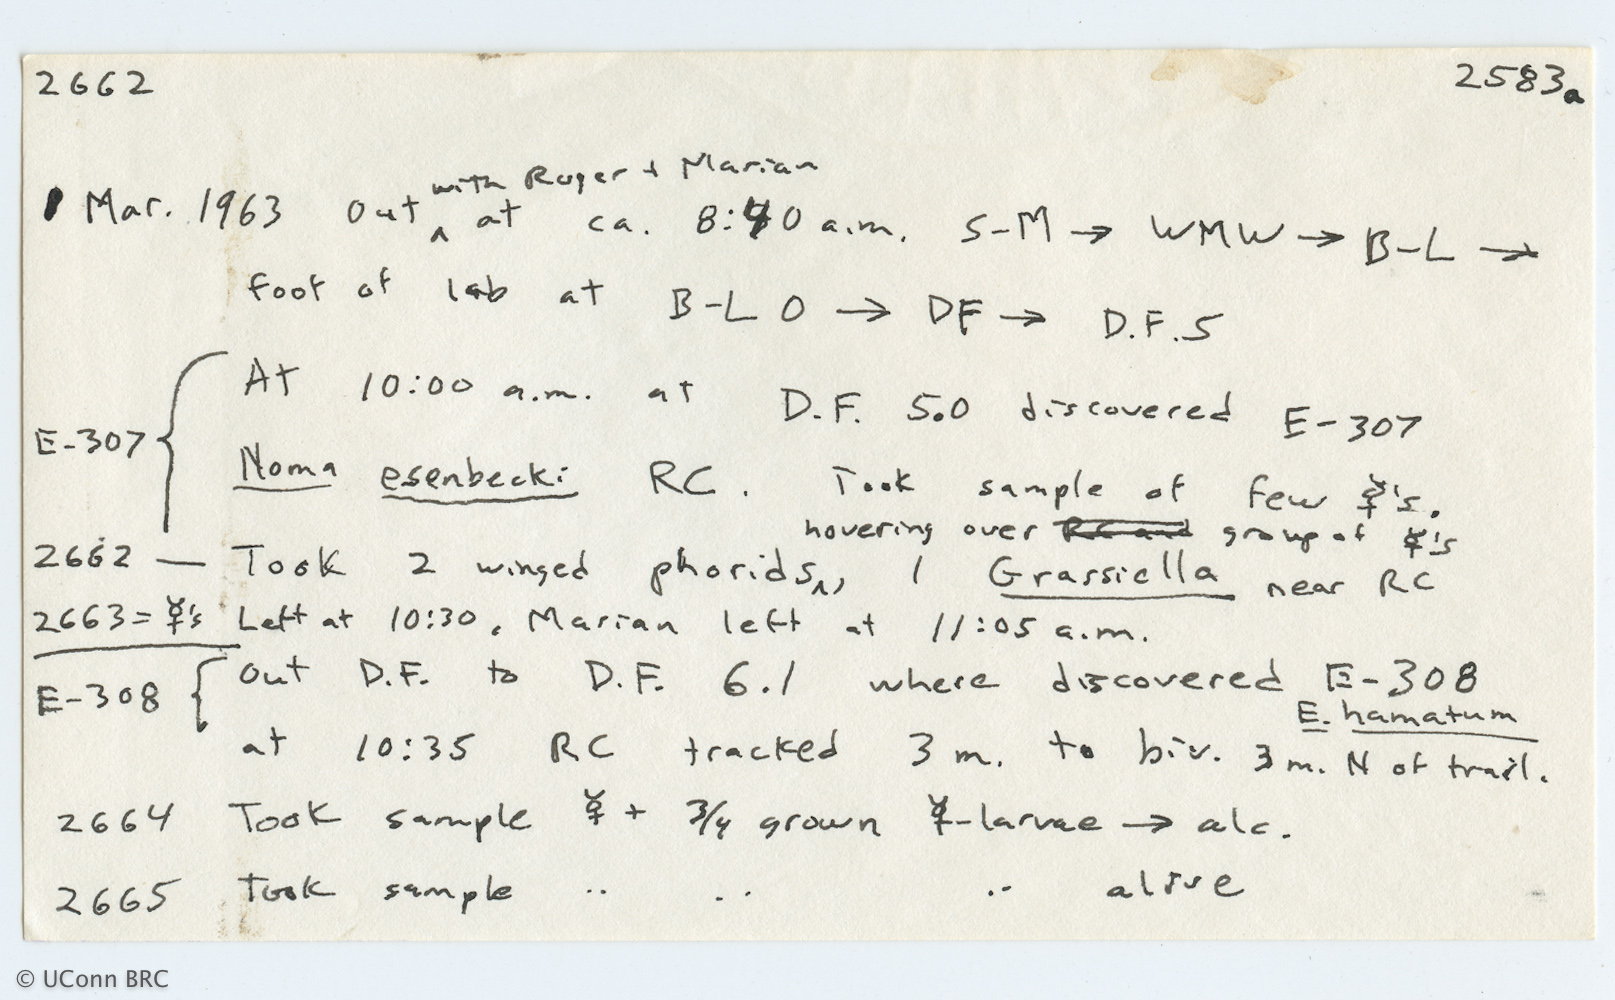 2662 2583a
1 Mar. 1963 Out ^ with Roger + Marian at ca. 8:40 a.m. S-M → WMW → B-L →
foot of lab at B-L 0 → DF → D.F. 5
E-307 { At 10:00 a.m. at D.F. 5.0 discovered E-307
Noma esenbecki RC. Took sample of few ☿'s.
hovering over RC and group of ☿'s
2662 — Took 2 winged phorids ^, 1 Grassiella near RC
2663 = ☿'s Left at 10:30, Marian left at 11:05 a.m.
E-308 { Out D.F. to D.F. 6.1 where discovered E-308
E. hamatum
at 10:35 RC tracked 3 m. to biv. 3 m. N of trail.
2664 Took sample ☿ + 3/4 grown ☿-larvae → alc.
2665 Took sample .. .. .. alive
© UConn BRC